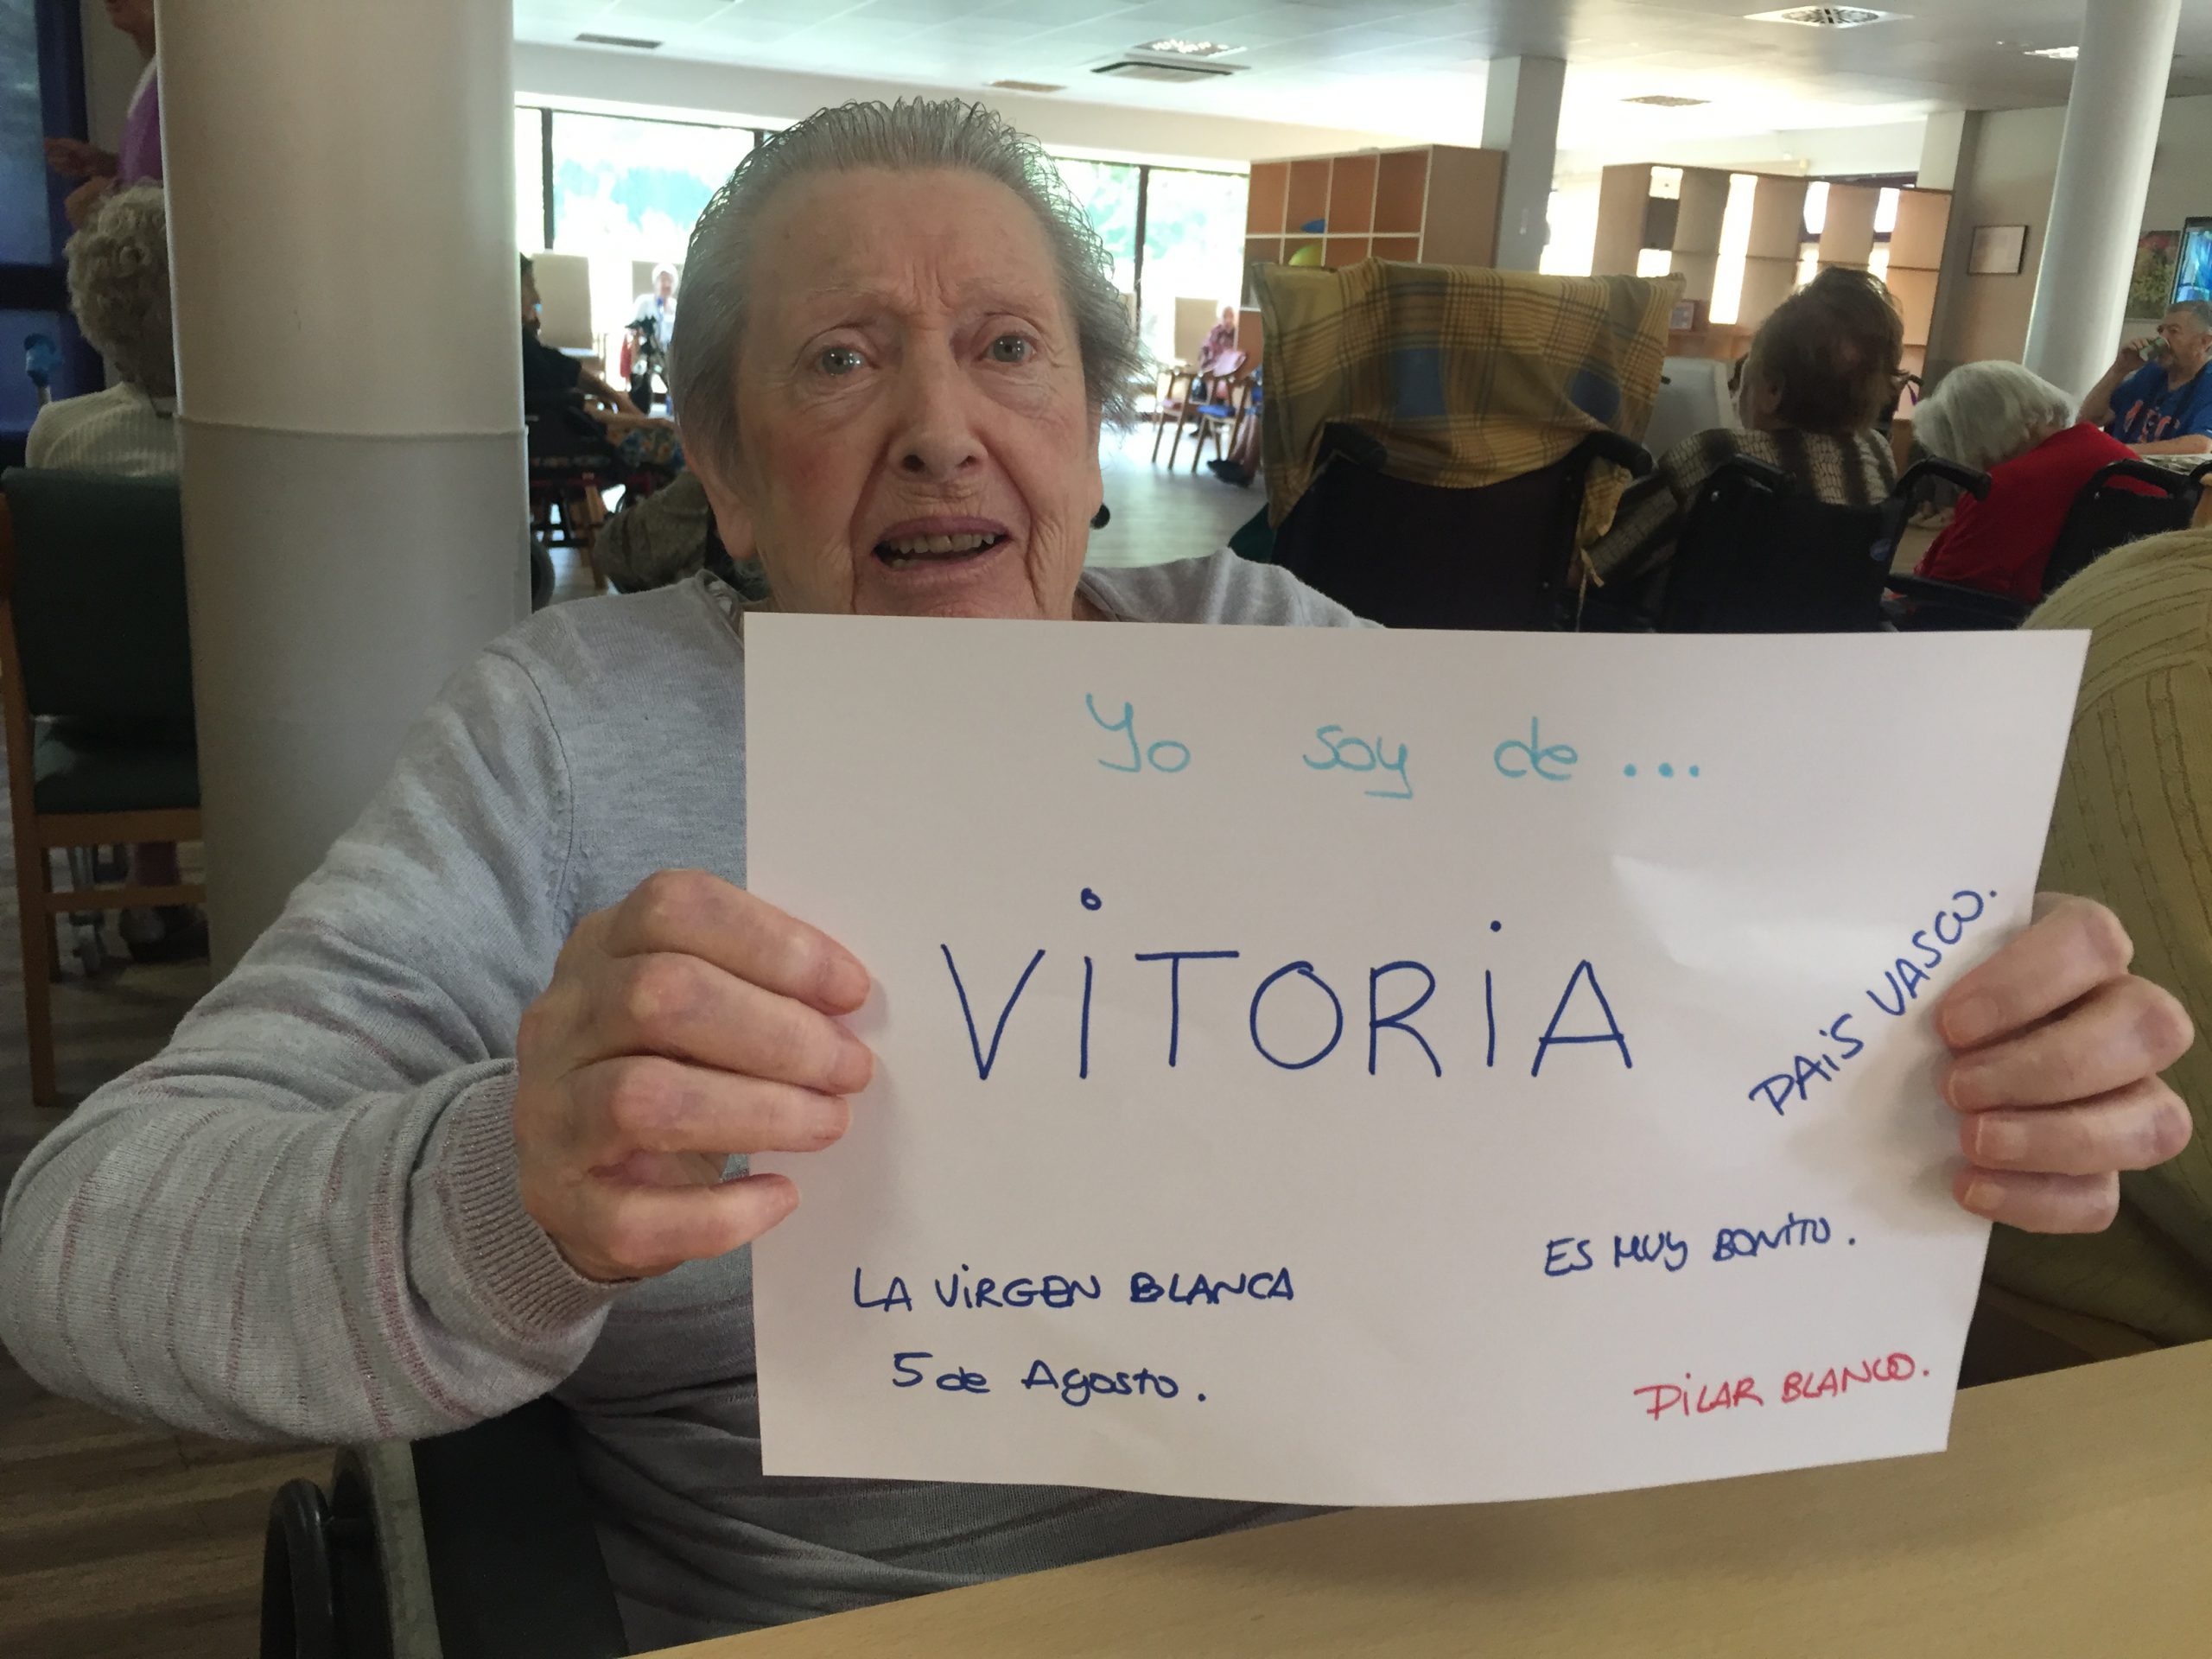 Yo soy de ...
VITORIA
PAIS VASCO.
LA VIRGEN BLANCA
5 de Agosto.
ES MUY BONITO.
PILAR BLANCO.